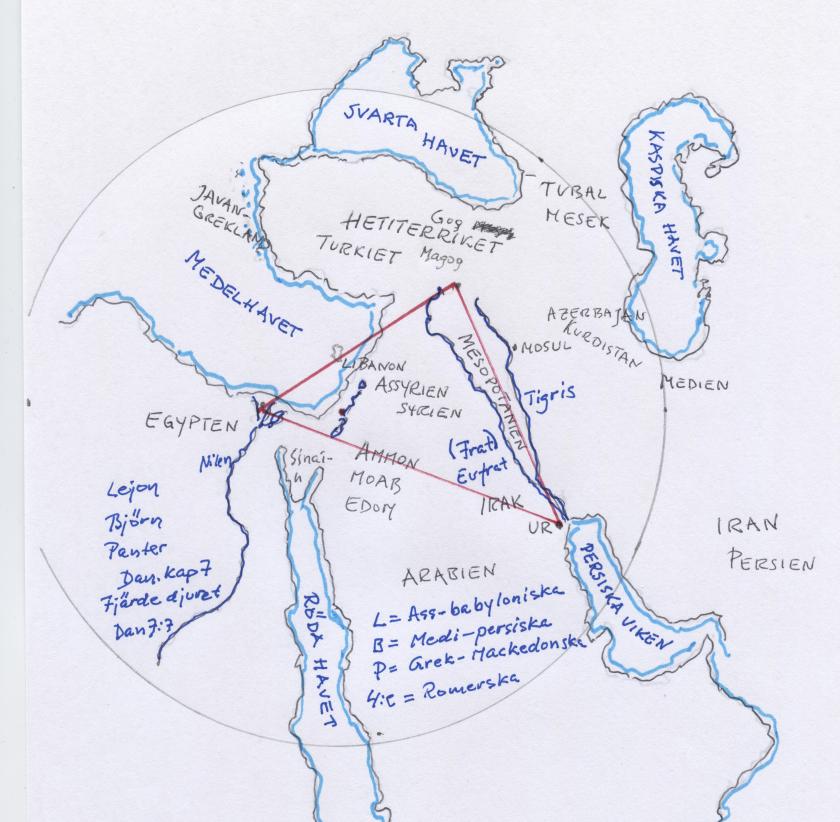 SVARTA HAVET
KASPISKA HAVET
TUBAL
MESEK
JAVAN-
GREKLAND
Gog
HETITERRIKET
TURKIET
Magog
MEDELHAVET
AZERBAJAN
KURDISTAN
MOSUL
MESOPOTANIEN
LIBANON
MEDIEN
ASSYRIEN
SYRIEN
Tigris
EGYPTEN
(Frat)
Eufrat
AMMON
MOAB
EDOM
Sinai-
n
Nilen
IRAK
UR
Lejon
Björn
Panter
Dan.kap7
Fjärde djuret
Dan7:7
IRAN
PERSIEN
ARABIEN
PERSISKA VIKEN
RÖDA HAVET
L= Ass-babyloniska
B= Medi-persiska
P= Grek-Mackedonska
4:e = Romerska